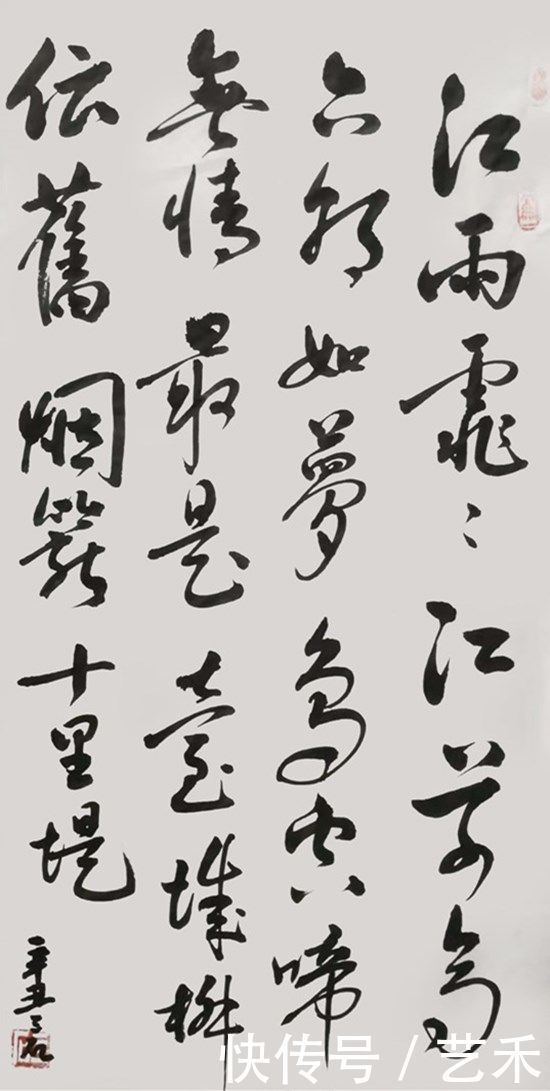 江雨霏〻江草齊
六朝如夢鳥空啼
無情最是臺城柳
依舊烟籠十里堤
辛丑
快传号 / 艺禾